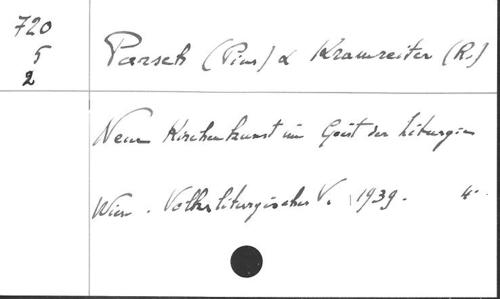 720
5
2
Parsch (Pius) & Kramreiter (R.)
Neue Kirchenkunst im Geist der Liturgie
Wien. Volksliturgischer V. 1939. 4°